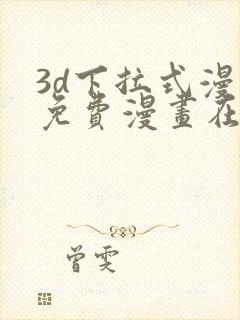 3d下拉式漫
免費漫畫在
曾雯